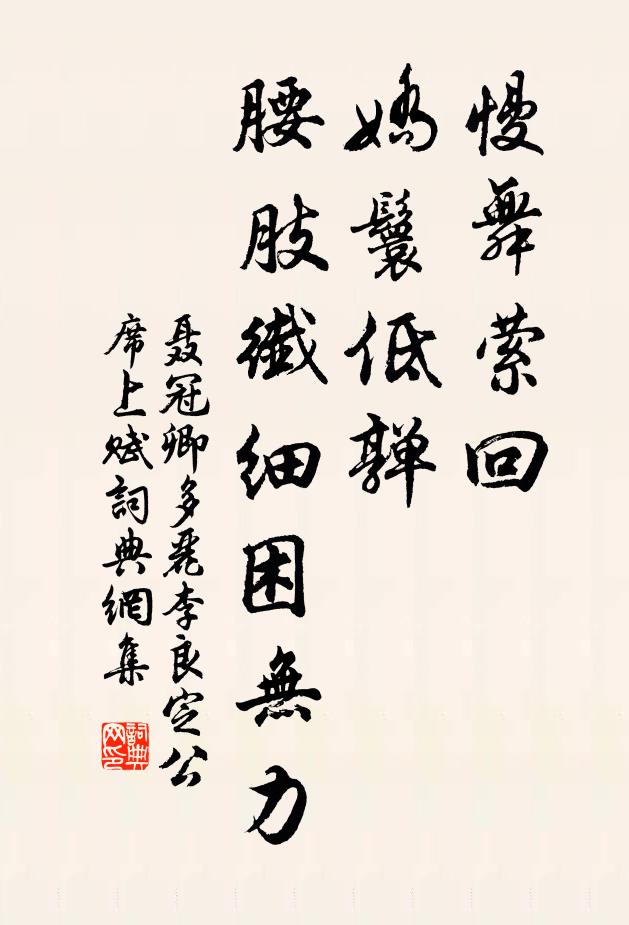 慢舞縈回
嬌鬟低嚲
腰肢纖細困無力
聶冠卿多麗李良定公
席上賦詞典網集
詞典
网印